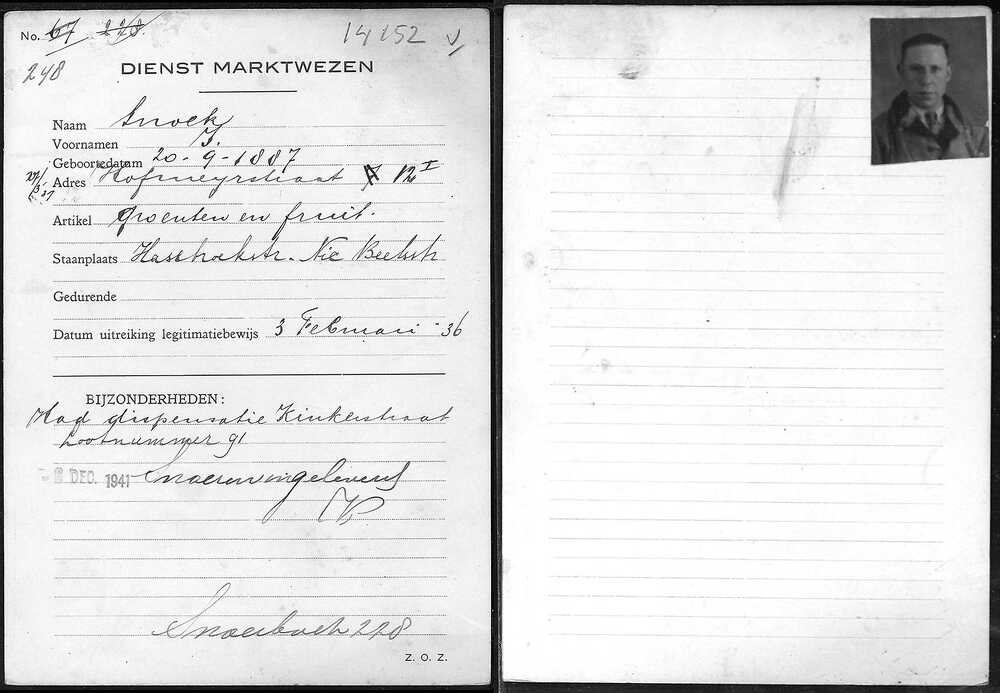 No. 67 228.
14152 V
248
DIENST MARKTWEZEN
Naam Snoek
Voornamen J.
Geboortedatum 20-9-1887
Adres Hofmeyrstraat 7 12 I
Artikel groenten en fruit.
Staanplaats Hasebroekstr. Nic Beetsstr
Gedurende
Datum uitreiking legitimatiebewijs 3 Februari '36
BIJZONDERHEDEN:
Had dispensatie Kinkerstraat
Lootnummer 91
DEC. 1941 ingeleverd
228
Z. O. Z.